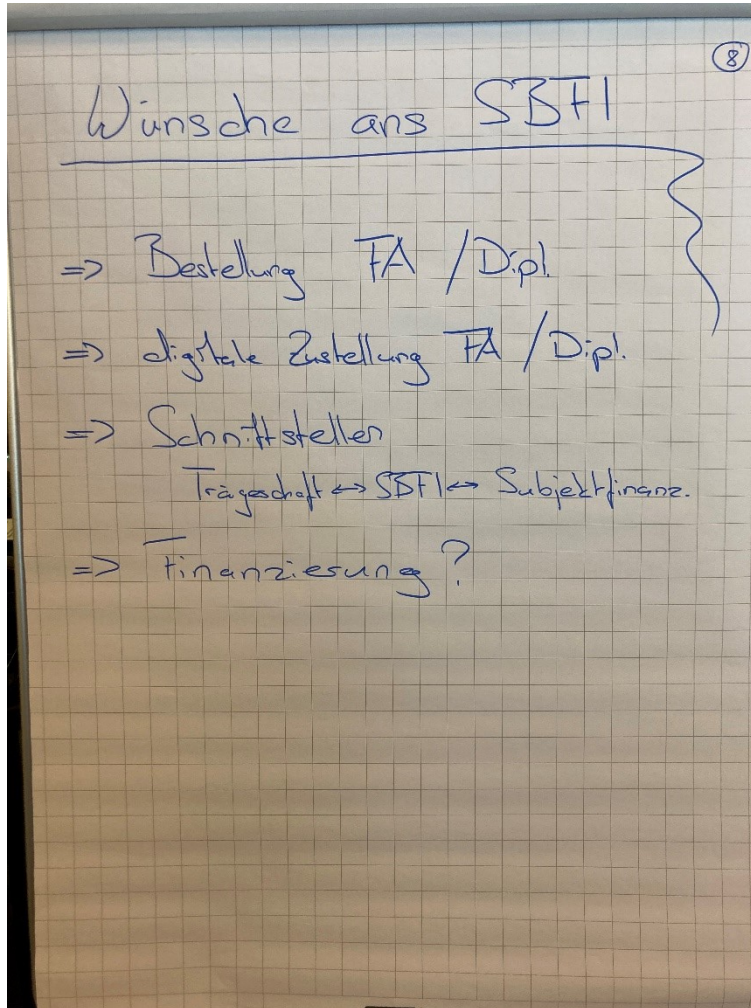 8
Wünsche ans SBFI
=> Bestellung FA / Dipl.
=> digitale Zustellung FA / Dipl.
=> Schnittstellen
Trägerschaft <-> SBFI <-> Subjektfinanz.
=> Finanzierung?